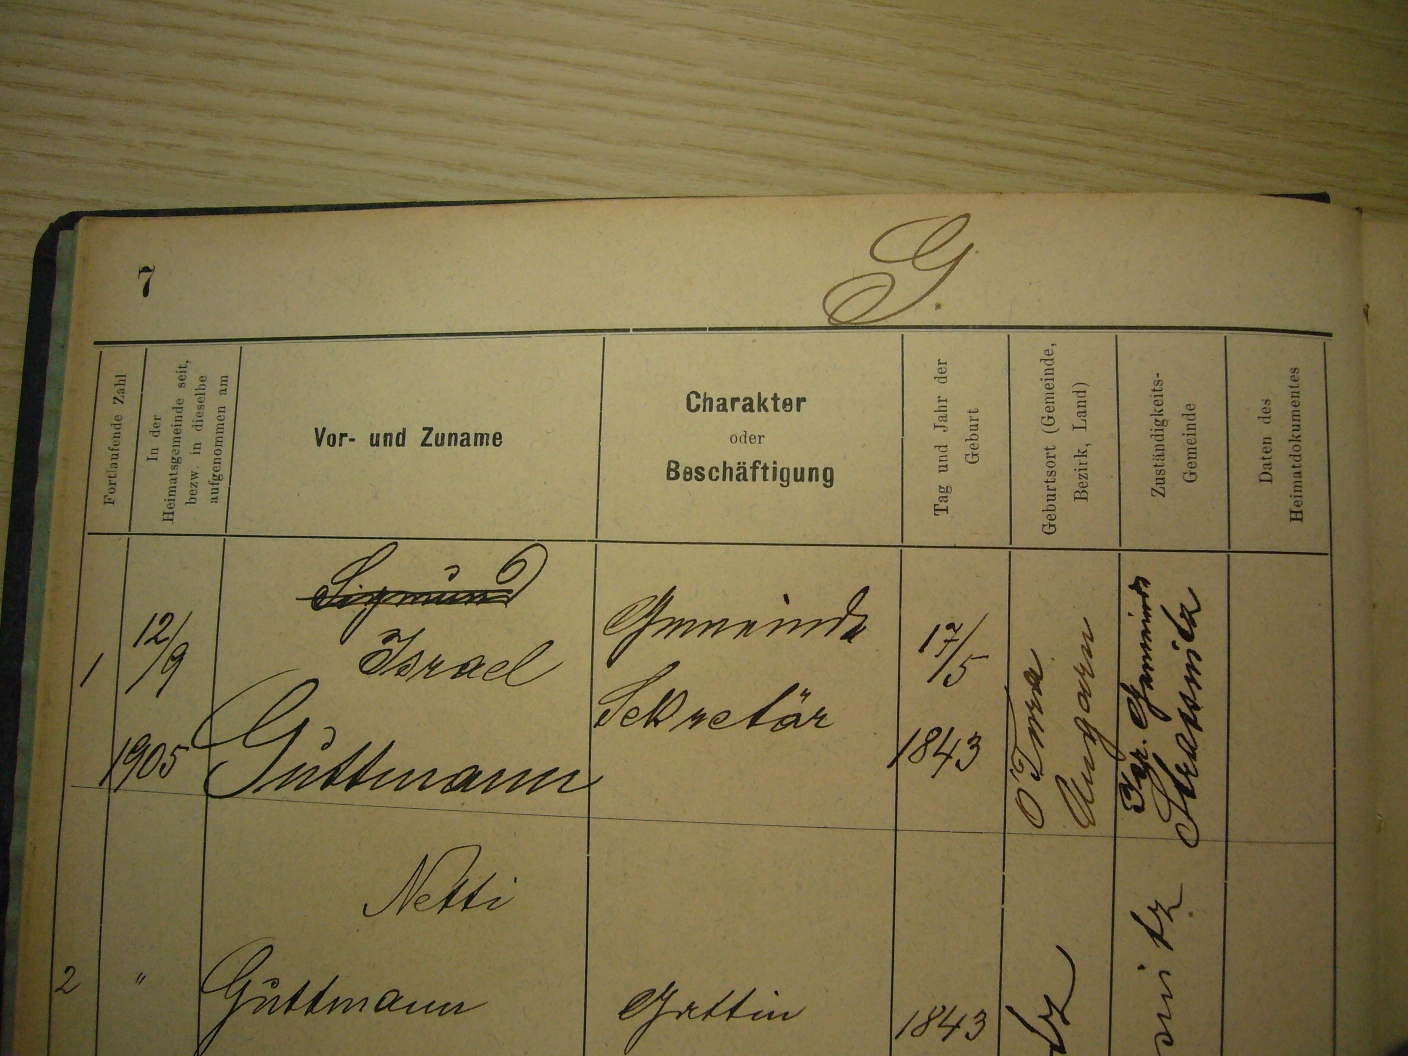 7
G.
Fortlaufende Zahl
In der
Heimatsgemeinde seit,
bezw. in dieselbe
aufgenommen am
Vor- und Zuname
Charakter
oder
Beschäftigung
Tag und Jahr der
Geburt
Geburtsort (Gemeinde,
Bezirk, Land)
Zuständigkeits-
Gemeinde
Daten des
Heimatdokumentes
1
12/9
1905
Sigmund
Israel
Guttmann
Gemeinde
Sekretär
17/5
1843
O'Tura
Ungarn
Isr. Gemeinde
Strassnitz
2
"
Netti
Guttmann
Gattin
1843
tz
nitz